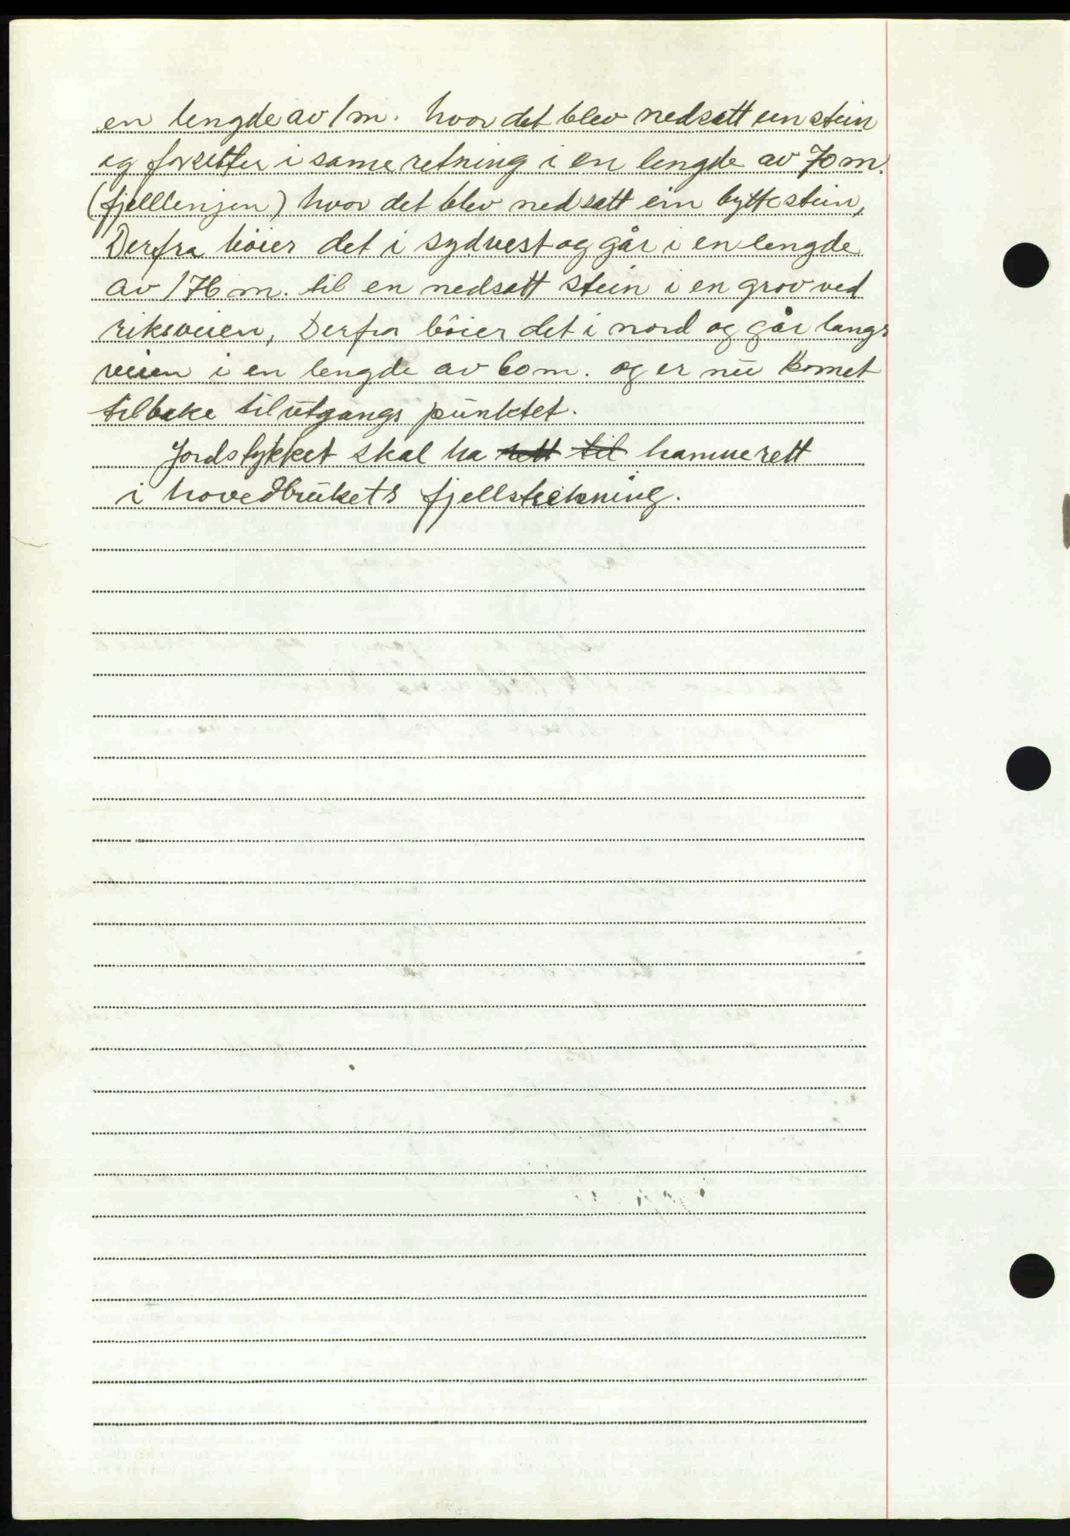 en lengde av 1 m. hvor det blev nedsatt een stein
og forsetter i same retning i en lengde av 70 m.
(fjelllenjen) hvor det blev nedsatt ein byttestein,
Derfra böier det i sydvest og går i en lengde
av 176 m. til en nedsatt stein i en grov ved
riksveien, Derfra böier det i nord og går langs
veien i en lengde av 60 m. og er nu komet
tilbake til utgangs punktet.
Jordstykket skal ha rett til hamnerett
i hovedbrukets fjellstrekning.